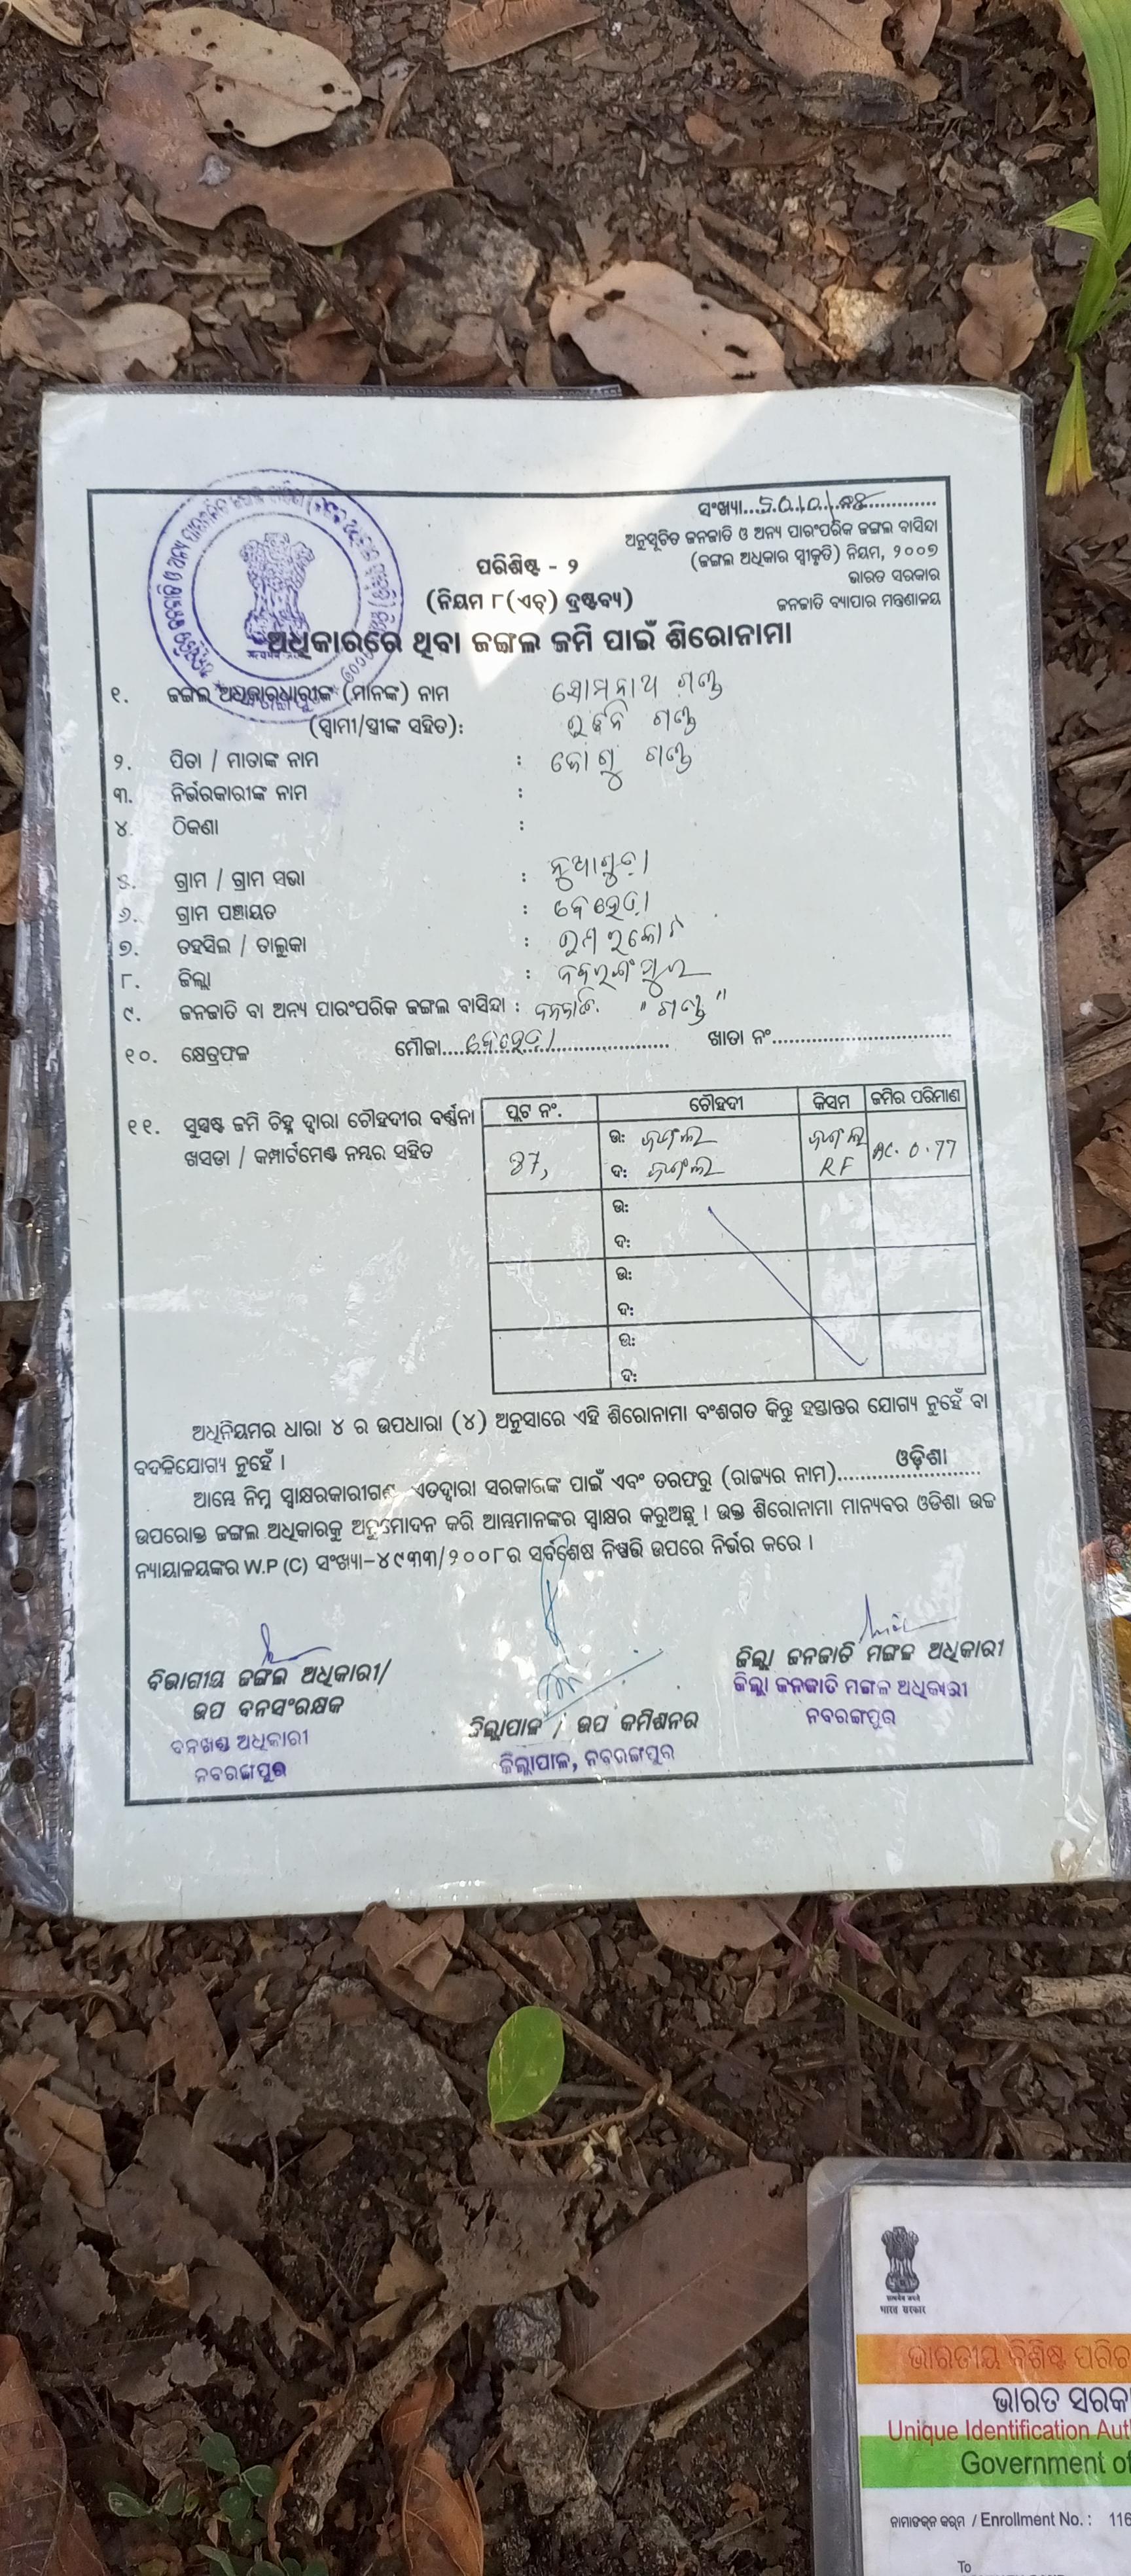 ସଂଖ୍ୟା
ଅନୁସୂଚିତ ଜନଜାତି ଓ ଅନ୍ୟ ପାରଂପରିକ ଜଙ୍ଗଲ ବାସିନ୍ଦା
(ଜଙ୍ଗଲ ଅଧିକାର ସ୍ୱୀକୃତି) ନିୟମ, ୨୦୦୭
ଭାରତ ସରକାର
ଜନଜାତି ବ୍ୟାପାର ମନ୍ତ୍ରଣାଳୟ
ପରିଶିଷ୍ଟ - ୨
(ନିୟମ ୮(ଏଚ୍) ଦ୍ରଷ୍ଟବ୍ୟ)
ଅଧିକାରରେ ଥିବା ଜଙ୍ଗଲ ଜମି ପାଇଁ ଶିରୋନାମା
୧. ଜଙ୍ଗଲ ଅଧିକାରଧାରୀଙ୍କ (ମାନଙ୍କ) ନାମ ସୋମନାଥ ଗଣ୍ଡ
(ସ୍ୱାମୀ/ସ୍ତ୍ରୀଙ୍କ ସହିତ): ଗଣ୍ଡ
୨. ପିତା / ମାତାଙ୍କ ନାମ : ଗଣ୍ଡ
୩. ନିର୍ଭରକାରୀଙ୍କ ନାମ :
୪. ଠିକଣା :
୫. ଗ୍ରାମ / ଗ୍ରାମ ସଭା : ନୁଆଗୁଡ଼ା
୬. ଗ୍ରାମ ପଞ୍ଚାୟତ : ବେହେଡ଼ା
୭. ତହସିଲ / ତାଲୁକା :
୮. ଜିଲ୍ଲା : ନବରଙ୍ଗପୁର
୯. ଜନଜାତି ବା ଅନ୍ୟ ପାରଂପରିକ ଜଙ୍ଗଲ ବାସିନ୍ଦା : ଜନଜାତି. "ଗଣ୍ଡ"
୧୦. କ୍ଷେତ୍ରଫଳ ମୌଜା ବେହେଡ଼ା ଖାତା ନଂ
୧୧. ସୁସ୍ପଷ୍ଟ ଜମି ଚିହ୍ନ ଦ୍ୱାରା ଚୌହଦୀର ବର୍ଣ୍ଣନା
ଖସଡା / କମ୍ପାର୍ଟମେଣ୍ଟ ନମ୍ବର ସହିତ
ପ୍ଲଟ ନଂ. ଚୌହଦୀ କିସମ ଜମିର ପରିମାଣ
ଉ: ଜଙ୍ଗଲ ଜଙ୍ଗଲ AC. 0.77
87, ଦ: ଜଙ୍ଗଲ RF
ଉ:
ଦ:
ଉ:
ଦ:
ଉ:
ଦ:
ଅଧିନିୟମର ଧାରା ୪ ର ଉପଧାରା (୪) ଅନୁସାରେ ଏହି ଶିରୋନାମା ବଂଶଗତ କିନ୍ତୁ ହସ୍ତାନ୍ତର ଯୋଗ୍ୟ ନୁହେଁ ବା
ବଦଳିଯୋଗ୍ୟ ନୁହେଁ ।
ଆମ୍ଭେ ନିମ୍ନ ସ୍ୱାକ୍ଷରକାରୀଗଣ ଏତଦ୍ୱାରା ସରକାରଙ୍କ ପାଇଁ ଏବଂ ତରଫରୁ (ରାଜ୍ୟର ନାମ) ଓଡ଼ିଶା
ଉପରୋକ୍ତ ଜଙ୍ଗଲ ଅଧିକାରକୁ ଅନୁମୋଦନ କରି ଆମ୍ଭମାନଙ୍କର ସ୍ୱାକ୍ଷର କରୁଅଛୁ । ଉକ୍ତ ଶିରୋନାମା ମାନ୍ୟବର ଓଡିଶା ଉଚ୍ଚ
ନ୍ୟାୟାଳୟଙ୍କର W.P (C) ସଂଖ୍ୟା-୪୯୩୩/୨୦୦୮ର ସର୍ବଶେଷ ନିଷ୍ପତ୍ତି ଉପରେ ନିର୍ଭର କରେ ।
ବିଭାଗୀୟ ଜଙ୍ଗଲ ଅଧିକାରୀ/
ଉପ ବନସଂରକ୍ଷକ
ବନଖଣ୍ଡ ଅଧିକାରୀ
ନବରଙ୍ଗପୁର
ଜିଲ୍ଲାପାଳ / ଉପ କମିଶନର
ଜିଲ୍ଲାପାଳ, ନବରଙ୍ଗପୁର
ଜିଲ୍ଲା ଜନଜାତି ମଙ୍ଗଳ ଅଧିକାରୀ
ଜିଲ୍ଲା ଜନଜାତି ମଙ୍ଗଳ ଅଧିକାରୀ
ନବରଙ୍ଗପୁର
भारत सरकार
ଭାରତୀୟ ବିଶିଷ୍ଟ
ଭାରତ
Unique Identification
Government of
/ Enrollment No. : 116
To